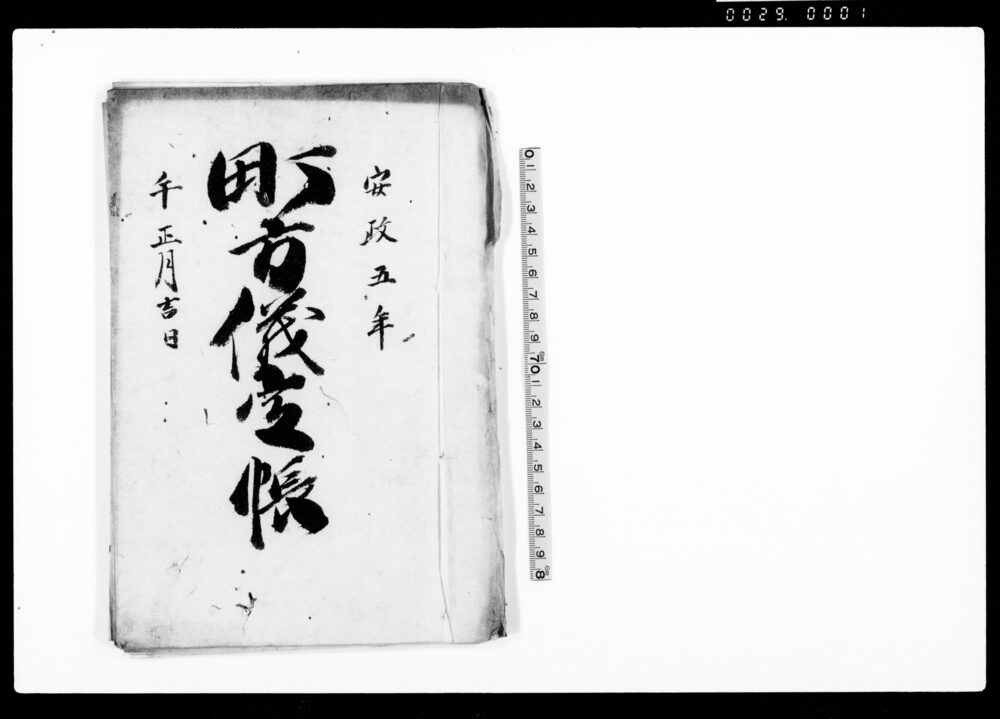 0029. 0001
安政五年
町方儀定帳
午正月吉日
0 1 2 3 4 5 6 7 8 9 70 1 2 3 4 5 6 7 8 9 8